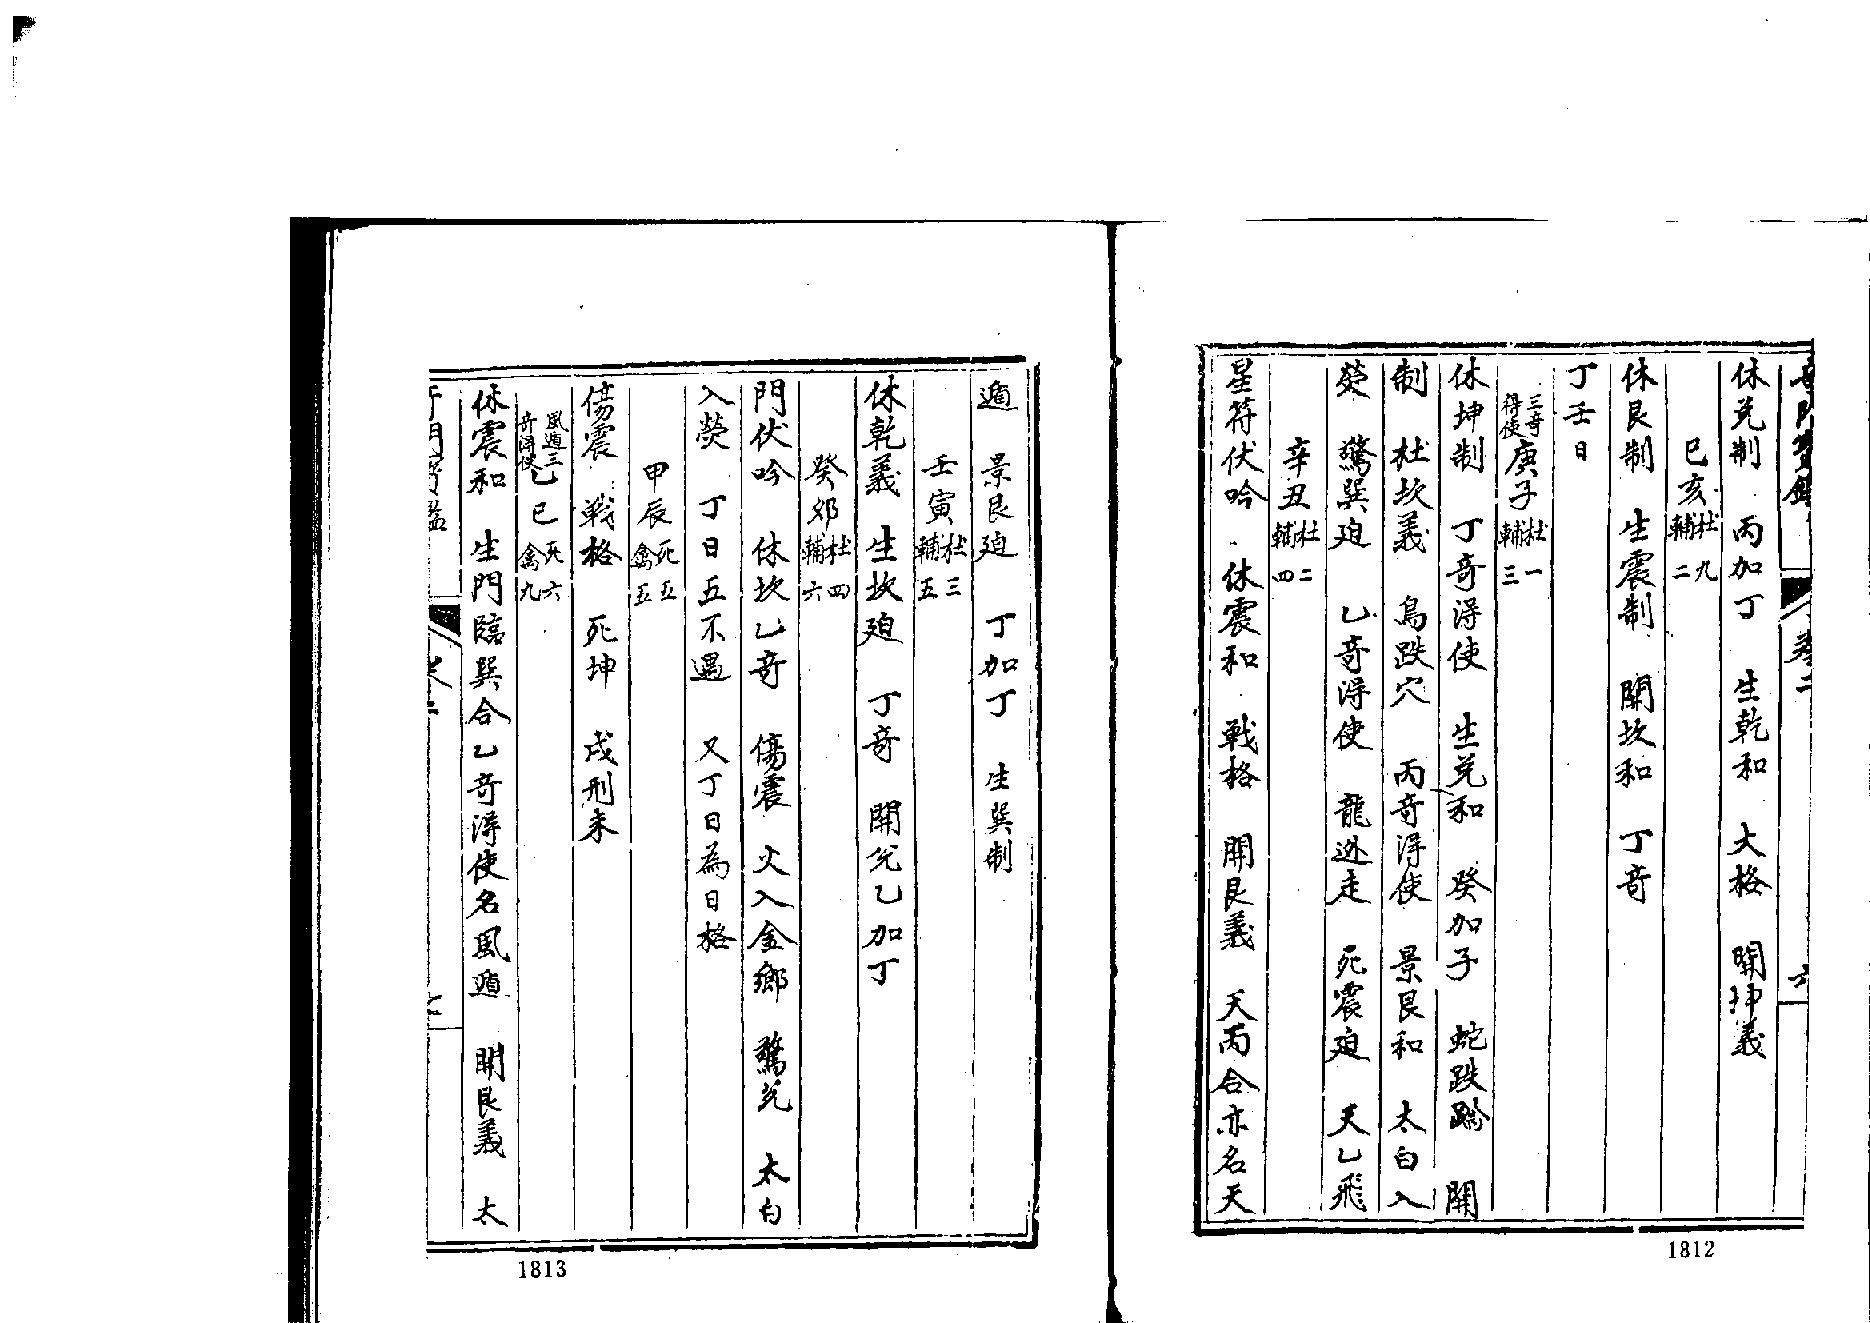 休兌制 丙加丁 生乾和 大格 開坤義
己亥杜九輔二
休艮制 生震制 開坎和 丁奇
丁壬日
三奇得使庚子杜一輔三
休坤制 丁奇淂使 生兌和 癸加子 蛇跌踰 開
制 杜坎義 鳥跌穴 丙奇淂使 景艮和 太白入
熒 驚巽廹 乙奇淂使 龍迯走 死震廹 天乙飛
辛丑杜二輔四
星符伏吟 休震和 戰格 開艮義 天丙合亦名天
卷二
六
1812
遁 景艮廹 丁加丁 生巽制
壬寅杜三輔五
休乾義 生坎廹 丁奇 開兌乙加丁
癸卯杜四輔六
門伏吟 休坎乙奇 傷震 火入金鄉 驚兌 太白
入熒 丁日五不遇 又丁日為日格
甲辰死五禽五
傷震 戰格 死坤 戌刑未
風遁三奇淂使乙巳死六禽九
休震和 生門臨巽合乙奇淂使名風遁 開艮義 太
1813